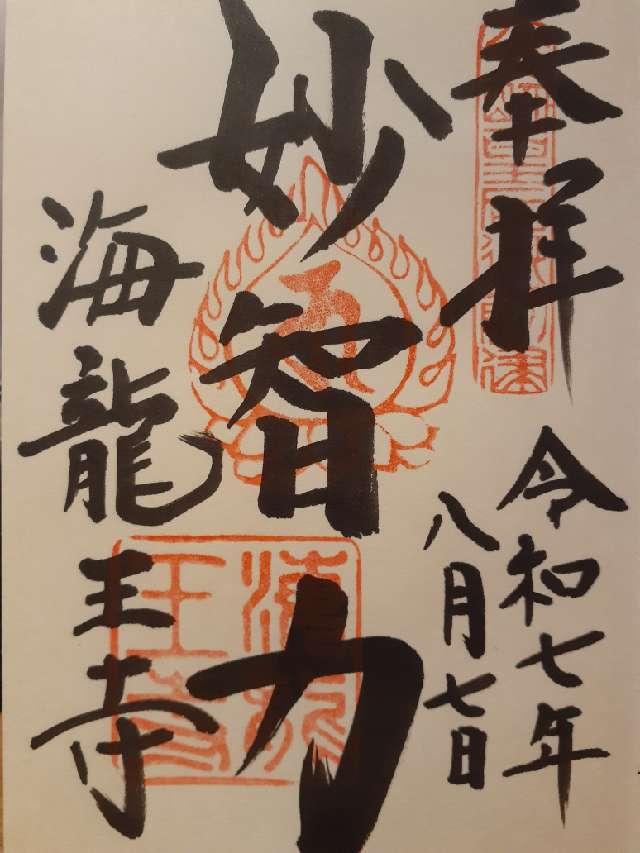 奉拝
令和七年
八月七日
妙智力
海龍王寺